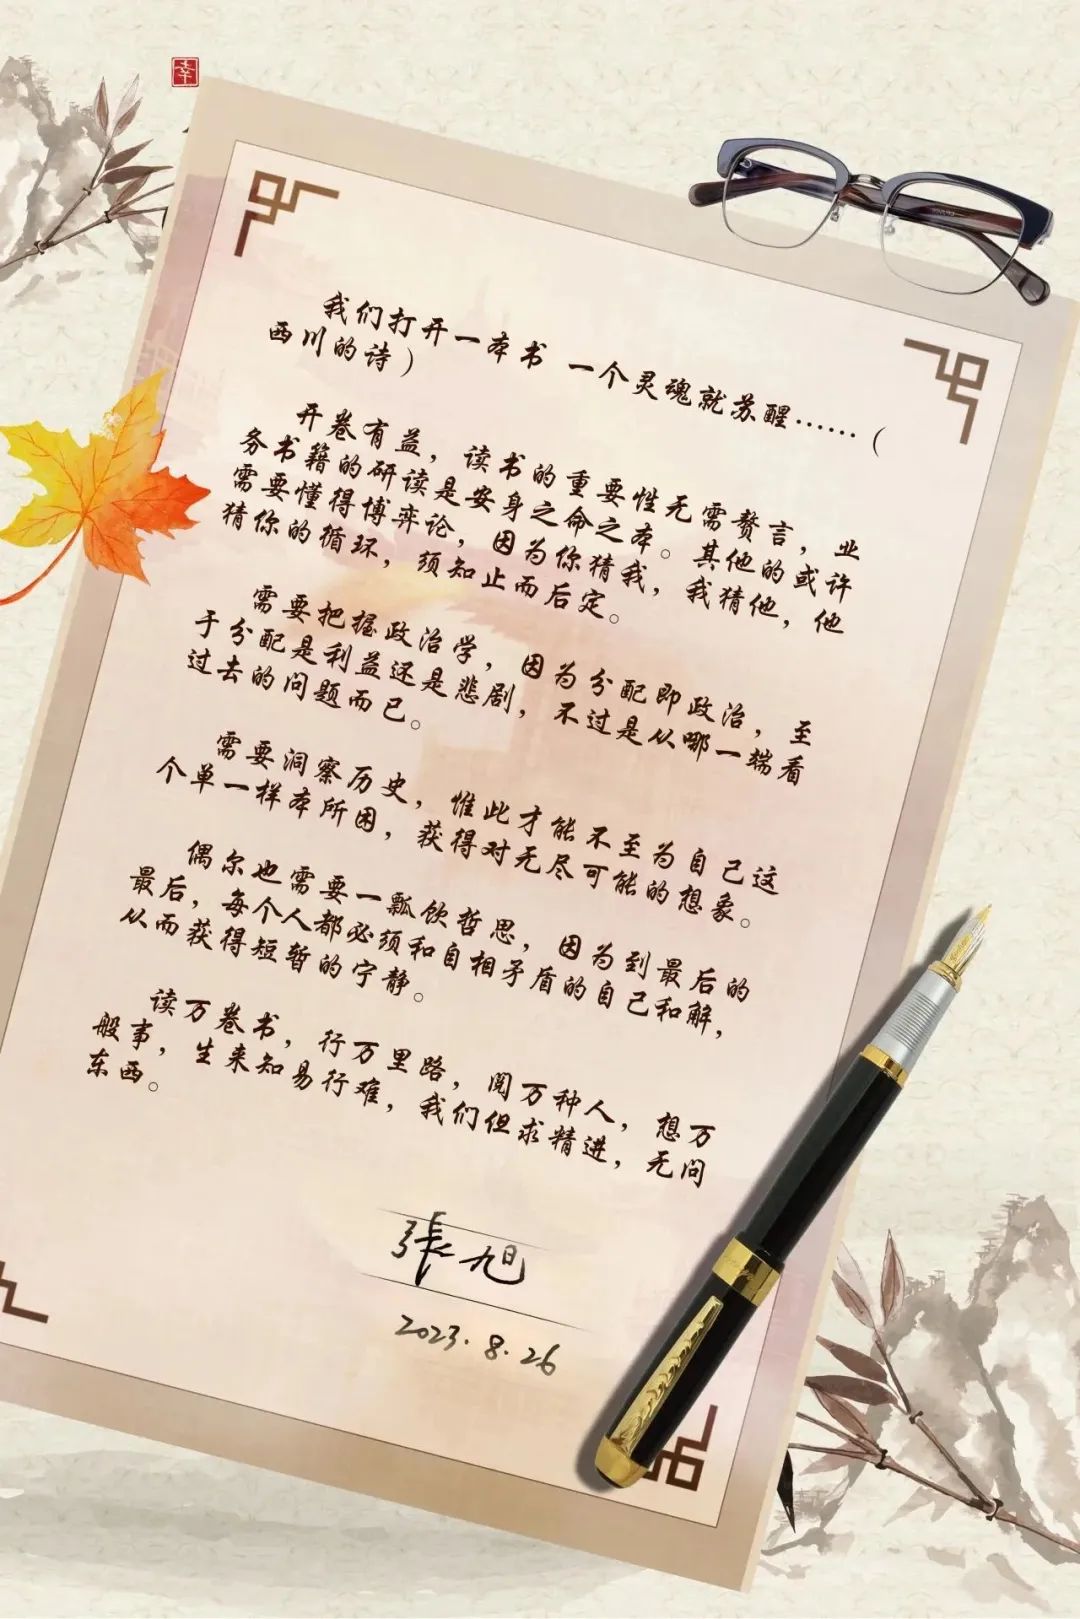 幸
我们打开一本书 一个灵魂就苏醒……（
西川的诗）
开卷有益，读书的重要性无需赘言，业
务书籍的研读是安身之命之本。其他的或许
需要懂得博弈论，因为你猜我，我猜他，他
猜你的循环，须知止而后定。
需要把握政治学，因为分配即政治，至
于分配是利益还是悲剧，不过是从哪一端看
过去的问题而已。
需要洞察历史，惟此才能不至为自己这
个单一样本所困，获得对无尽可能的想象。
偶尔也需要一瓢饮哲思，因为到最后的
最后，每个人都必须和自相矛盾的自己和解，
从而获得短暂的宁静。
读万卷书，行万里路，阅万种人，想万
般事，生来知易行难，我们但求精进，无问
东西。
張旭
2023.8.26